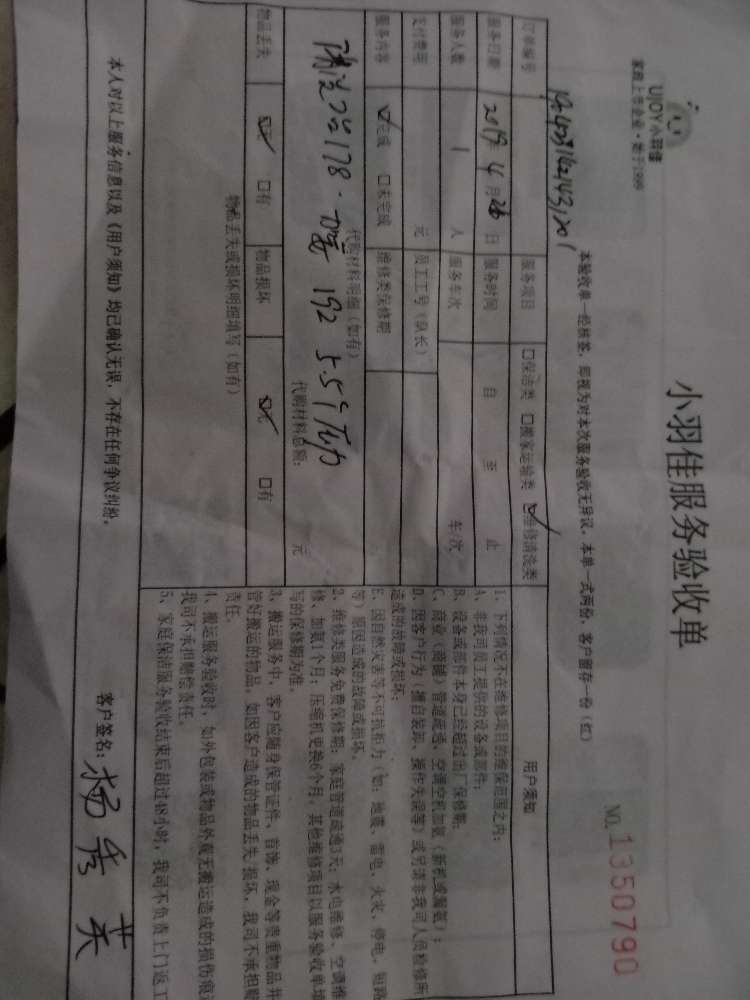 UJOY小羽佳
家政上市企业·始于1999
小羽佳服务验收单
NO. 1350790
本验收单一经核签，即视为对本次服务验收无异议。本单一式两份，客户留存一份（红）
订单编号
服务项目 □保洁类 □搬家运输类 ☑维修清洗类
服务日期 2019 年 4 月 26 日 服务时间 自 至 止
服务人数 1 人 服务车次 车次
支付费用 元 员工工号（队长）
服务内容 ☑完成 □未完成 维修类保修期
代购材料明细（如有）
代购材料总额： 元
物品丢失 ☑无 □有 物品损坏 ☑无 □有
物品丢失或损坏明细填写（如有）
用户须知
1、下列情况不在维修项目的维保范围之内：
A、非我司员工提供的设备或部件；
B、设备或部件本身已经超过出厂保修期；
C、商业（商铺）管道疏通、空调空机加氨（新机或漏氨）；
D、因客户行为（擅自装卸、操作失误等）或另请非我司人员检修所
造成的故障或损坏；
E、因自然灾害等不可抗拒力（如：地震、雷电、火灾、停电、短路
等）原因造成的故障或损坏。
2、维修类服务免费保修期：家庭管道疏通3天；水电维修、空调维
修、加氨1个月；压缩机更换6个月，其他维修项目以服务验收单填
写的保修期为准。
3、搬运服务中，客户应随身保管证件、首饰、现金等贵重物品并
管好搬运的物品，如因客户造成的物品丢失/损坏，我司不承担赔
责任。
4、搬运服务验收时，如外包装或物品外观无搬运造成的损伤痕迹
我司不承担赔偿责任。
5、家庭保洁服务验收结束后超过48小时，我司不负责上门返工
本人对以上服务信息以及《用户须知》均已确认无误，不存在任何争议纠纷。
客户签名：杨秀英